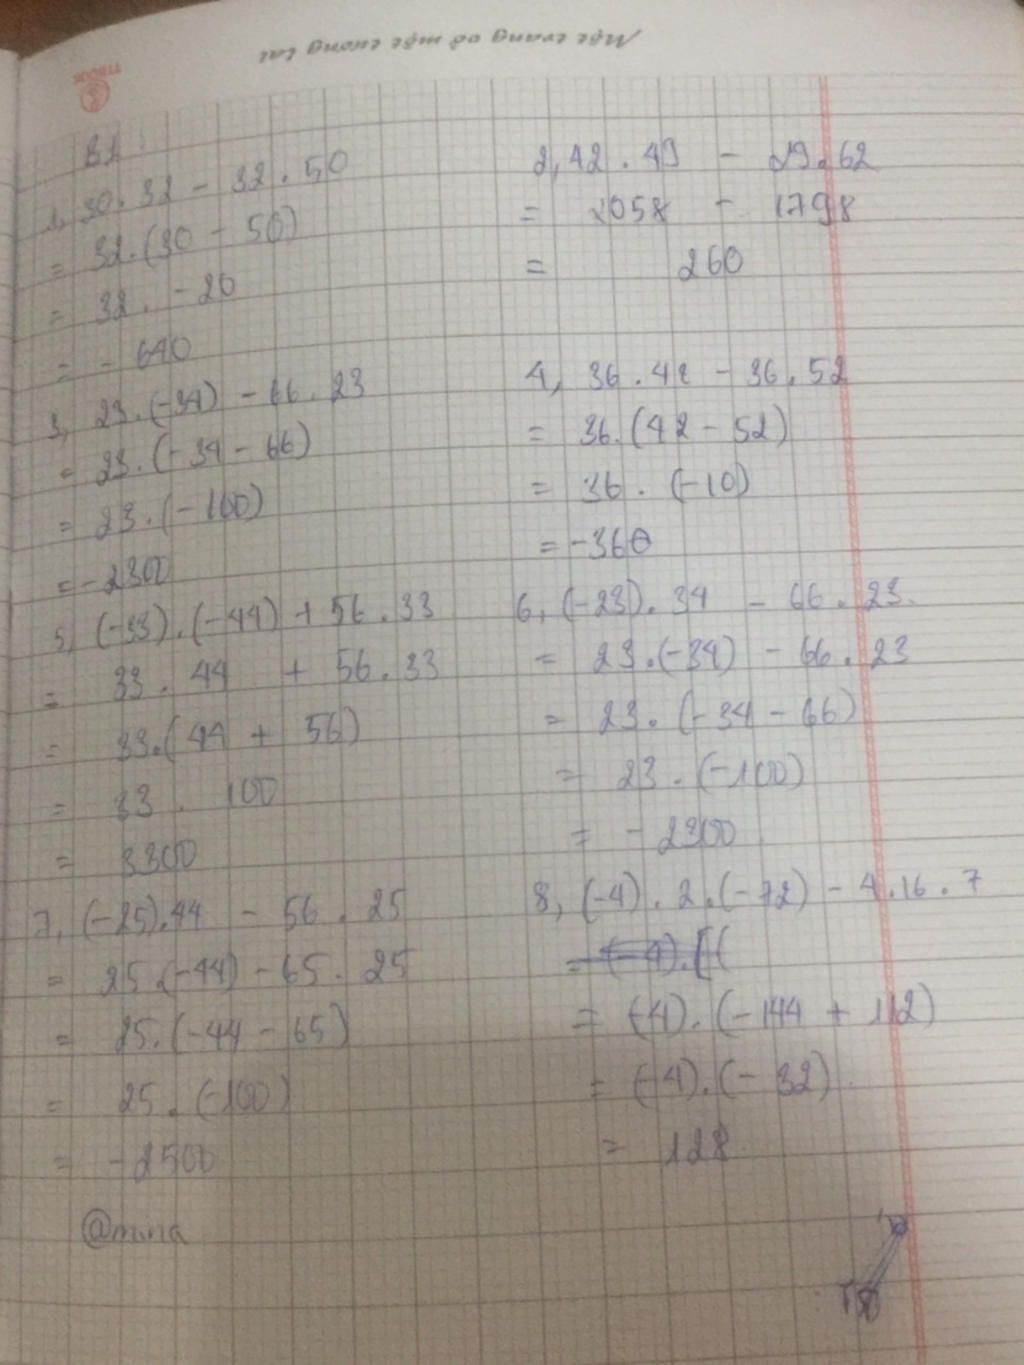 Một trang vở một tương lai
B1
1, 30.32 - 32.50
= 32.(30 - 50)
= 32. -20
= - 640
2, 42.49 - 29.62
= 2058 - 1798
= 260
3, 23.(-34) - 66.23
= 23.(-34 - 66)
= 23.(-100)
= -2300
4, 36.42 - 36.52
= 36.(42 - 52)
= 36.(-10)
= -360
5, (-33).(-44) + 56.33
= 33.44 + 56.33
= 33.(44 + 56)
= 33.100
= 3300
6, (-23).34 - 66.23.
= 23.(-34) - 66.23
= 23.(-34 - 66)
= 23.(-100)
= - 2300
7, (-25).44 - 56.25
= 25.(-44) - 65.25
= 25.(-44 - 65)
= 25.(-100)
= -2500
8, (-4).2.(-72) - 4.16.7
= (-4).[(
= (-4).(-144 + 112)
= (-4).(-32)
= 128
@mina